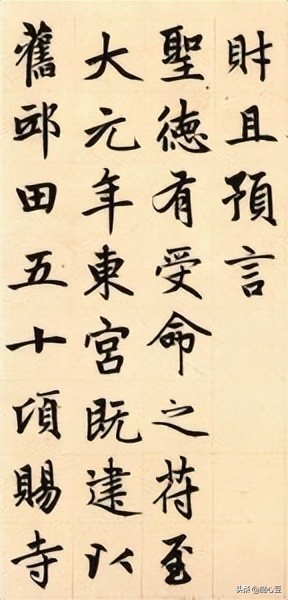 財且預言
聖德有受命之符至
大元年東宮既建以
舊邸田五十頃賜寺
头条@幽心荳